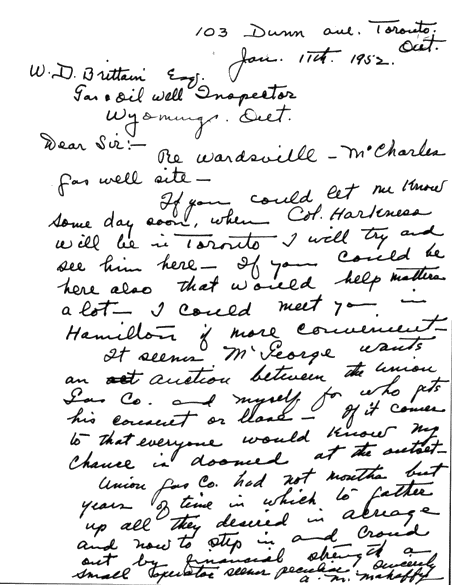 103 Dunn ave. Toronto.
Ont.
Jan. 11th. 1952.
W. D. Brittain Esq.
Gas & Oil well Inspector
Wyoming. Ont.
Dear Sir:—
Re Wardsville – McCharles
gas well site —
If you could let me know
some day soon, when Col. Harkness
will be in Toronto I will try and
see him here — If you could be
here also that would help matters
a lot — I could meet you in
Hamilton if more convenient —
It seems McGeorge wants
an auction between the Union
Gas Co. and myself for who gets
his consent or lease — If it comes
to that everyone would know my
chance is doomed at the outset —
Union Gas Co. had not months but
years of time in which to gather
up all they desired in acreage
and now to step in and crowd
out by financial strength a
small operator seems peculiar. Sincerely
a. m.